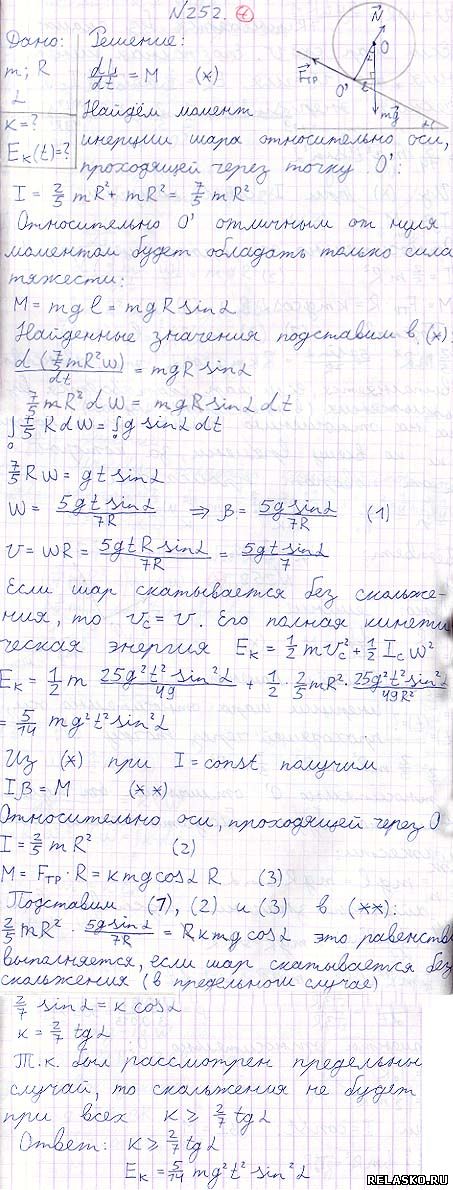 N252. 4
Дано: Решение:
m; R
α
к=?
Eк(t)=?
N
O
Fтр
O'
l
mg
α
dL/dt = M (*)
Найдём момент
инерции шара относительно оси,
проходящей через точку O':
I = 2/5 mR² + mR² = 7/5 mR²
Относительно O' отличным от нуля
моментом будет обладать только сила
тяжести:
M = mgl = mgR sinα
Найденные значения подставим в (*):
d(7/5 mR²ω)/dt = mgR sinα
7/5 mR² dω = mgR sinα dt
∫₀ 7/5 R dω = ∫₀ g sinα dt
7/5 Rω = gt sinα
ω = 5gt sinα/7R ⇒ β = 5g sinα/7R (1)
v = ωR = 5gtR sinα/7R = 5gt sinα/7
Если шар скатывается без скольже-
ния, то vc = v. Его полная кинети
ческая энергия Eк = 1/2 mvc² + 1/2 Icω²
Eк = 1/2 m 25g²t² sin²α/49 + 1/2 · 2/5 mR² · 25g²t² sin²α/49R²
= 5/14 mg²t² sin²α
Из (*) при I = const получим
Iβ = M (**)
Относительно оси, проходящей через O
I = 2/5 mR² (2)
M = Fтр · R = кmg cosα R (3)
Подставим (1), (2) и (3) в (**):
2/5 mR² · 5g sinα/7R = Rкmg cosα это равенств
выполняется, если шар скатывается без
скольжения (в предельном случае)
2/7 sinα = к cosα
к = 2/7 tgα
Т.к. был рассмотрен предельны
случай, то скольжения не будет
при всех к ≥ 2/7 tgα
Ответ: к ≥ 2/7 tgα
Eк = 5/14 mg²t² sin²α
RELASKO.RU